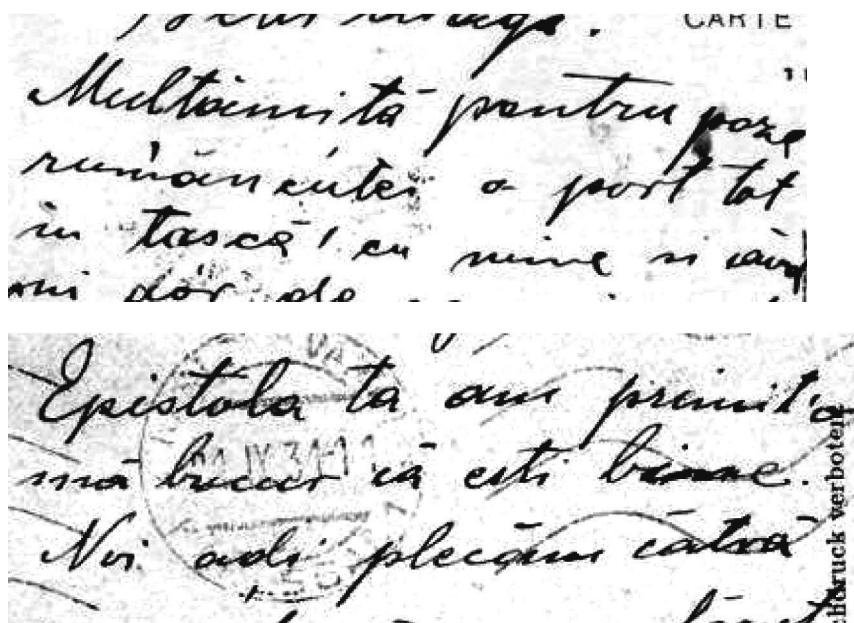 CARTE
Multămită pentru poze
rumăncutei o port tot
în tașcă! cu mine și
mi dor de
Epistola ta am primit'o
mă bucur că ești bine.
Noi adi plecăm cătră
chdruck verboten